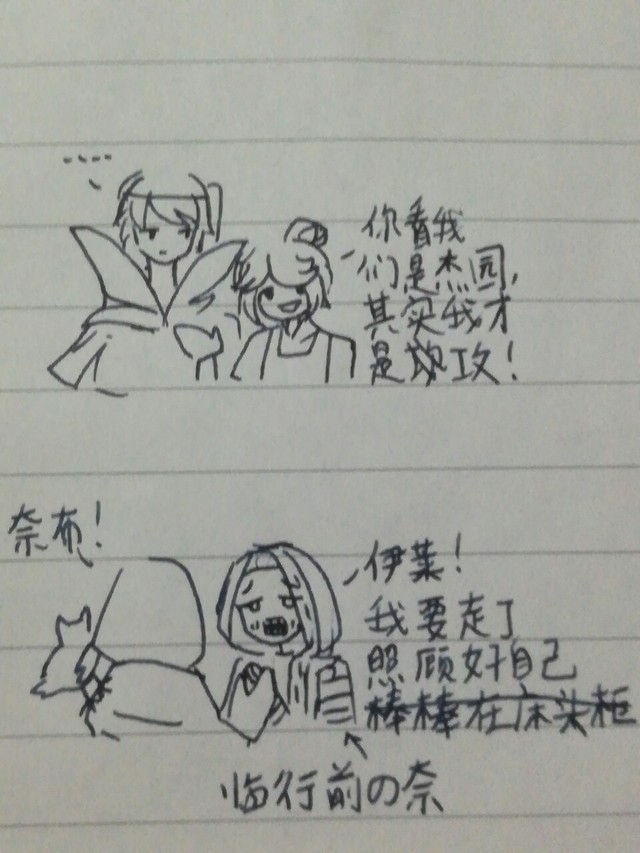 你看我
们是杰园,
其实我才
是欺攻!
奈布!
伊莱!
我要走了
照顾好自己
棒棒在床头柜
临行前の奈